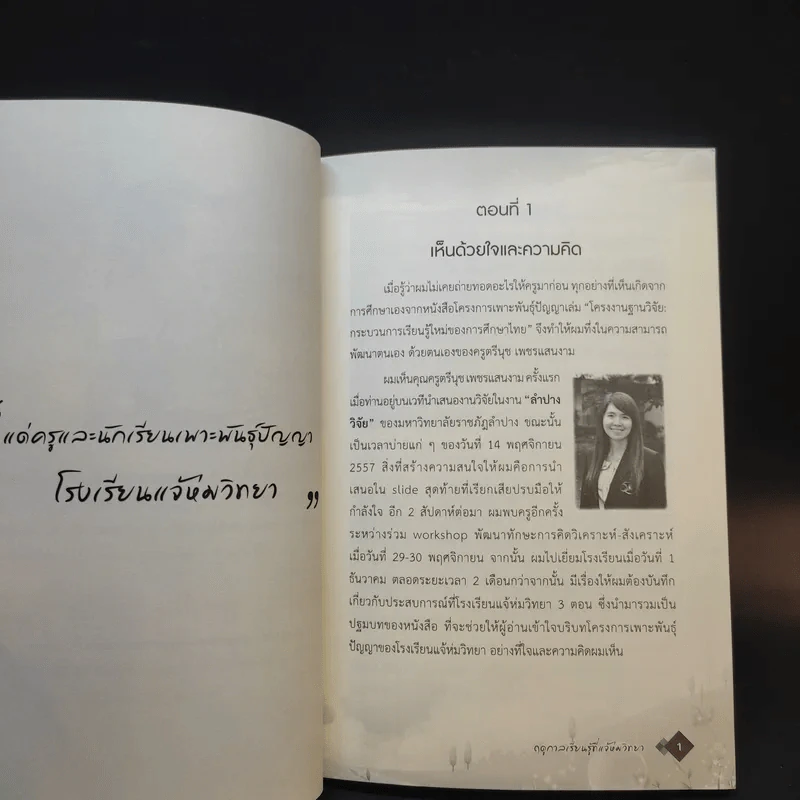 แด่ครูและนักเรียนเพาะพันธุ์ปัญญา
โรงเรียนแจ้ห่มวิทยา ”
ตอนที่ 1
เห็นด้วยใจและความคิด
เมื่อรู้ว่าผมไม่เคยถ่ายทอดอะไรให้ครูมาก่อน ทุกอย่างที่เห็นเกิดจาก
การศึกษาเองจากหนังสือโครงการเพาะพันธุ์ปัญญาเล่ม “โครงงานฐานวิจัย:
กระบวนการเรียนรู้ใหม่ของการศึกษาไทย” จึงทำให้ผมทึ่งในความสามารถ
พัฒนาตนเอง ด้วยตนเองของครูตรีนุช เพชรแสนงาม
ผมเห็นคุณครูตรีนุช เพชรแสนงาม ครั้งแรก
เมื่อท่านอยู่บนเวทีนำเสนองานวิจัยในงาน “ลำปาง
วิจัย” ของมหาวิทยาลัยราชภัฏลำปาง ขณะนั้น
เป็นเวลาบ่ายแก่ ๆ ของวันที่ 14 พฤศจิกายน
2557 สิ่งที่สร้างความสนใจให้ผมคือการนำ
เสนอใน slide สุดท้ายที่เรียกเสียงปรบมือให้
กำลังใจ อีก 2 สัปดาห์ต่อมา ผมพบครูอีกครั้ง
ระหว่างร่วม workshop พัฒนาทักษะการคิดวิเคราะห์-สังเคราะห์
เมื่อวันที่ 29-30 พฤศจิกายน จากนั้น ผมไปเยี่ยมโรงเรียนเมื่อวันที่ 1
ธันวาคม ตลอดระยะเวลา 2 เดือนกว่าจากนั้น มีเรื่องให้ผมต้องบันทึก
เกี่ยวกับประสบการณ์ที่โรงเรียนแจ้ห่มวิทยา 3 ตอน ซึ่งนำมารวมเป็น
ปฐมบทของหนังสือ ที่จะช่วยให้ผู้อ่านเข้าใจบริบทโครงการเพาะพันธุ์
ปัญญาของโรงเรียนแจ้ห่มวิทยา อย่างที่ใจและความคิดผมเห็น
ฤดูกาลเรียนรู้ที่แจ้ห่มวิทยา 1